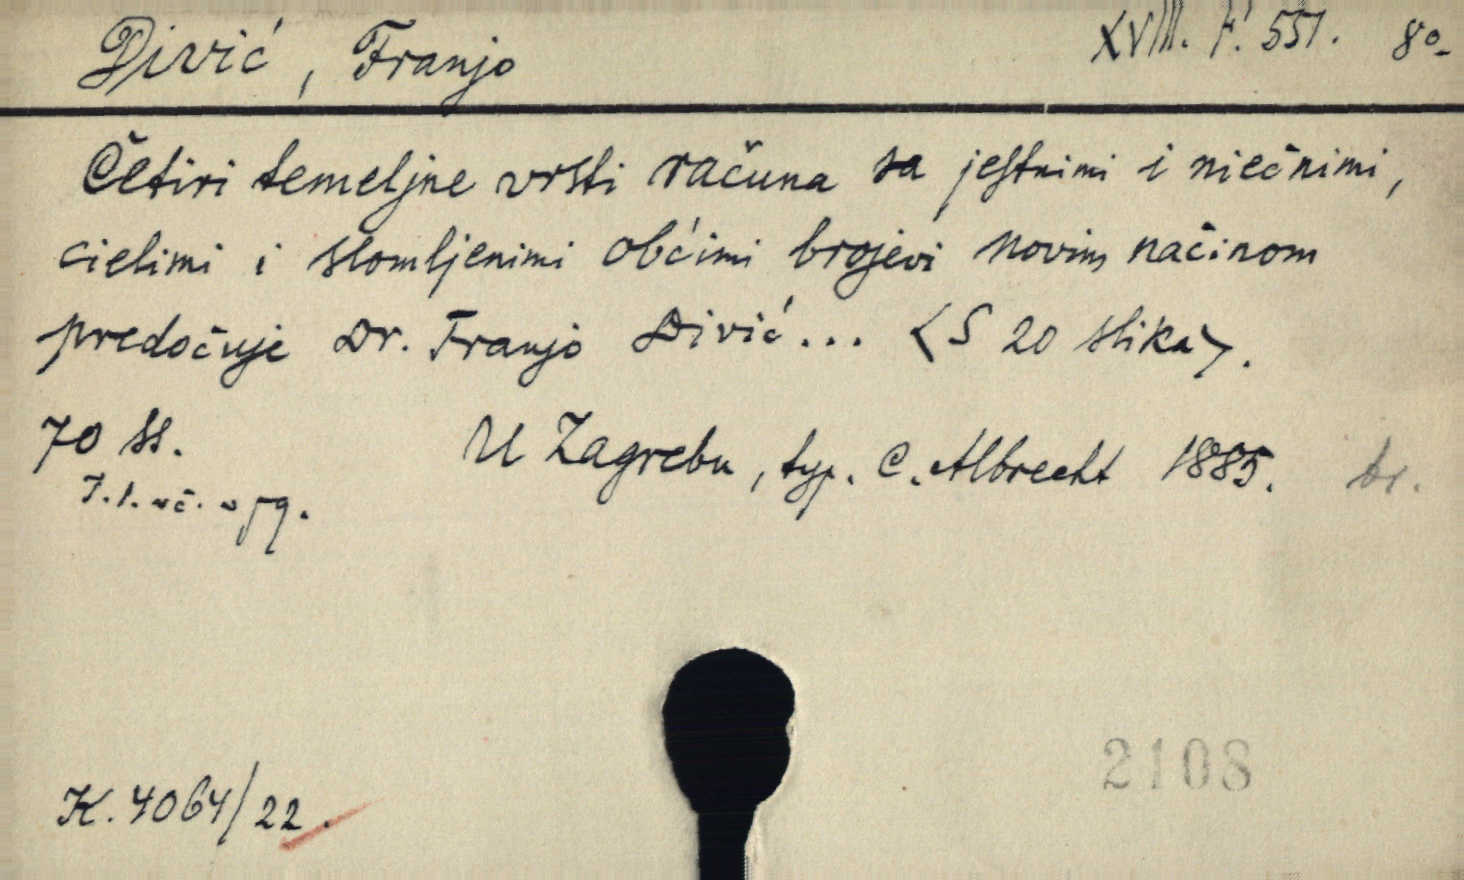 Divić, Franjo XVIII. F. 551. 8º-
Četiri temeljne vrsti računa sa jestnimi i niečnimi,
cielimi i slomljenimi obćimi brojevi novim načinom
predočuje Dr. Franjo Divić... <S 20 slika>.
70 ss. U Zagrebu, typ. C. Albrecht 1885.
K. 4064/22.
2108